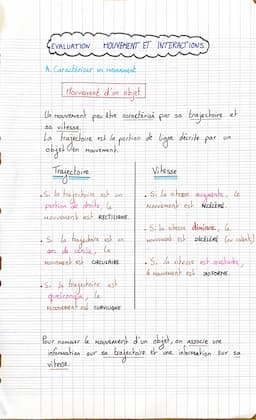 EVALUATION MOUVEMENT ET INTERACTIONS
A. Caractériser un mouvement
Mouvement d'un objet
Un mouvement peu être caractérisé par sa trajectoire et
sa vitesse.
La trajectoire est la portion de ligne décrite par un
objet en mouvement.
Trajectoire
• Si la trajectoire est un
portion de droite, le
mouvement est RECTILIGNE.
• Si la trajectoire est un
arc de cercle, le
mouvement est CIRCULAIRE.
• Si la trajectoire est
quelconque, le
mouvement est CURVILIGNE
Vitesse
• Si la vitesse augmente, le
mouvement est ACCÉLÉRÉ.
• Si la vitesse diminue, le
mouvement est DÉCÉLÉRÉ (ou ralenti)
• Si la vitesse est constante,
le mouvement est UNIFORME.
Pour nommer le mouvement d'un objet, on associe une
information sur sa trajectoire et une information sur sa
vitesse.